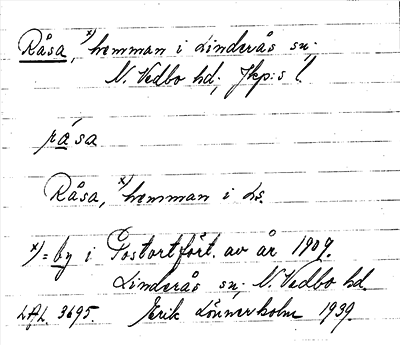 Råsa, x) hemman i Linderås sn;
N. Vedbo hd; Jkp:s l.
råsa
Råsa, x) hemman i Ls.
x) = by i Postortfört. av år 1909.
Linderås sn; N. Vedbo hd.
LAL 3695 Erik Lönnerholm 1939.